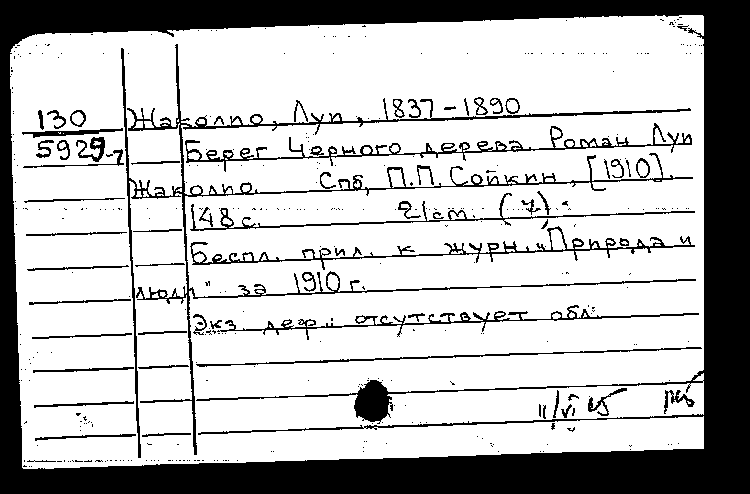 130 Жаколио, Луи, 1837-1890
5929-7 Берег Черного дерева. Роман Луи
Жаколио. Спб, П.П. Сойкин, [1910].
148 с. 21см. (7).
Беспл. прил. к журн. "Природа и
люди" за 1910 г.
Экз. деф.: отсутствует обл.